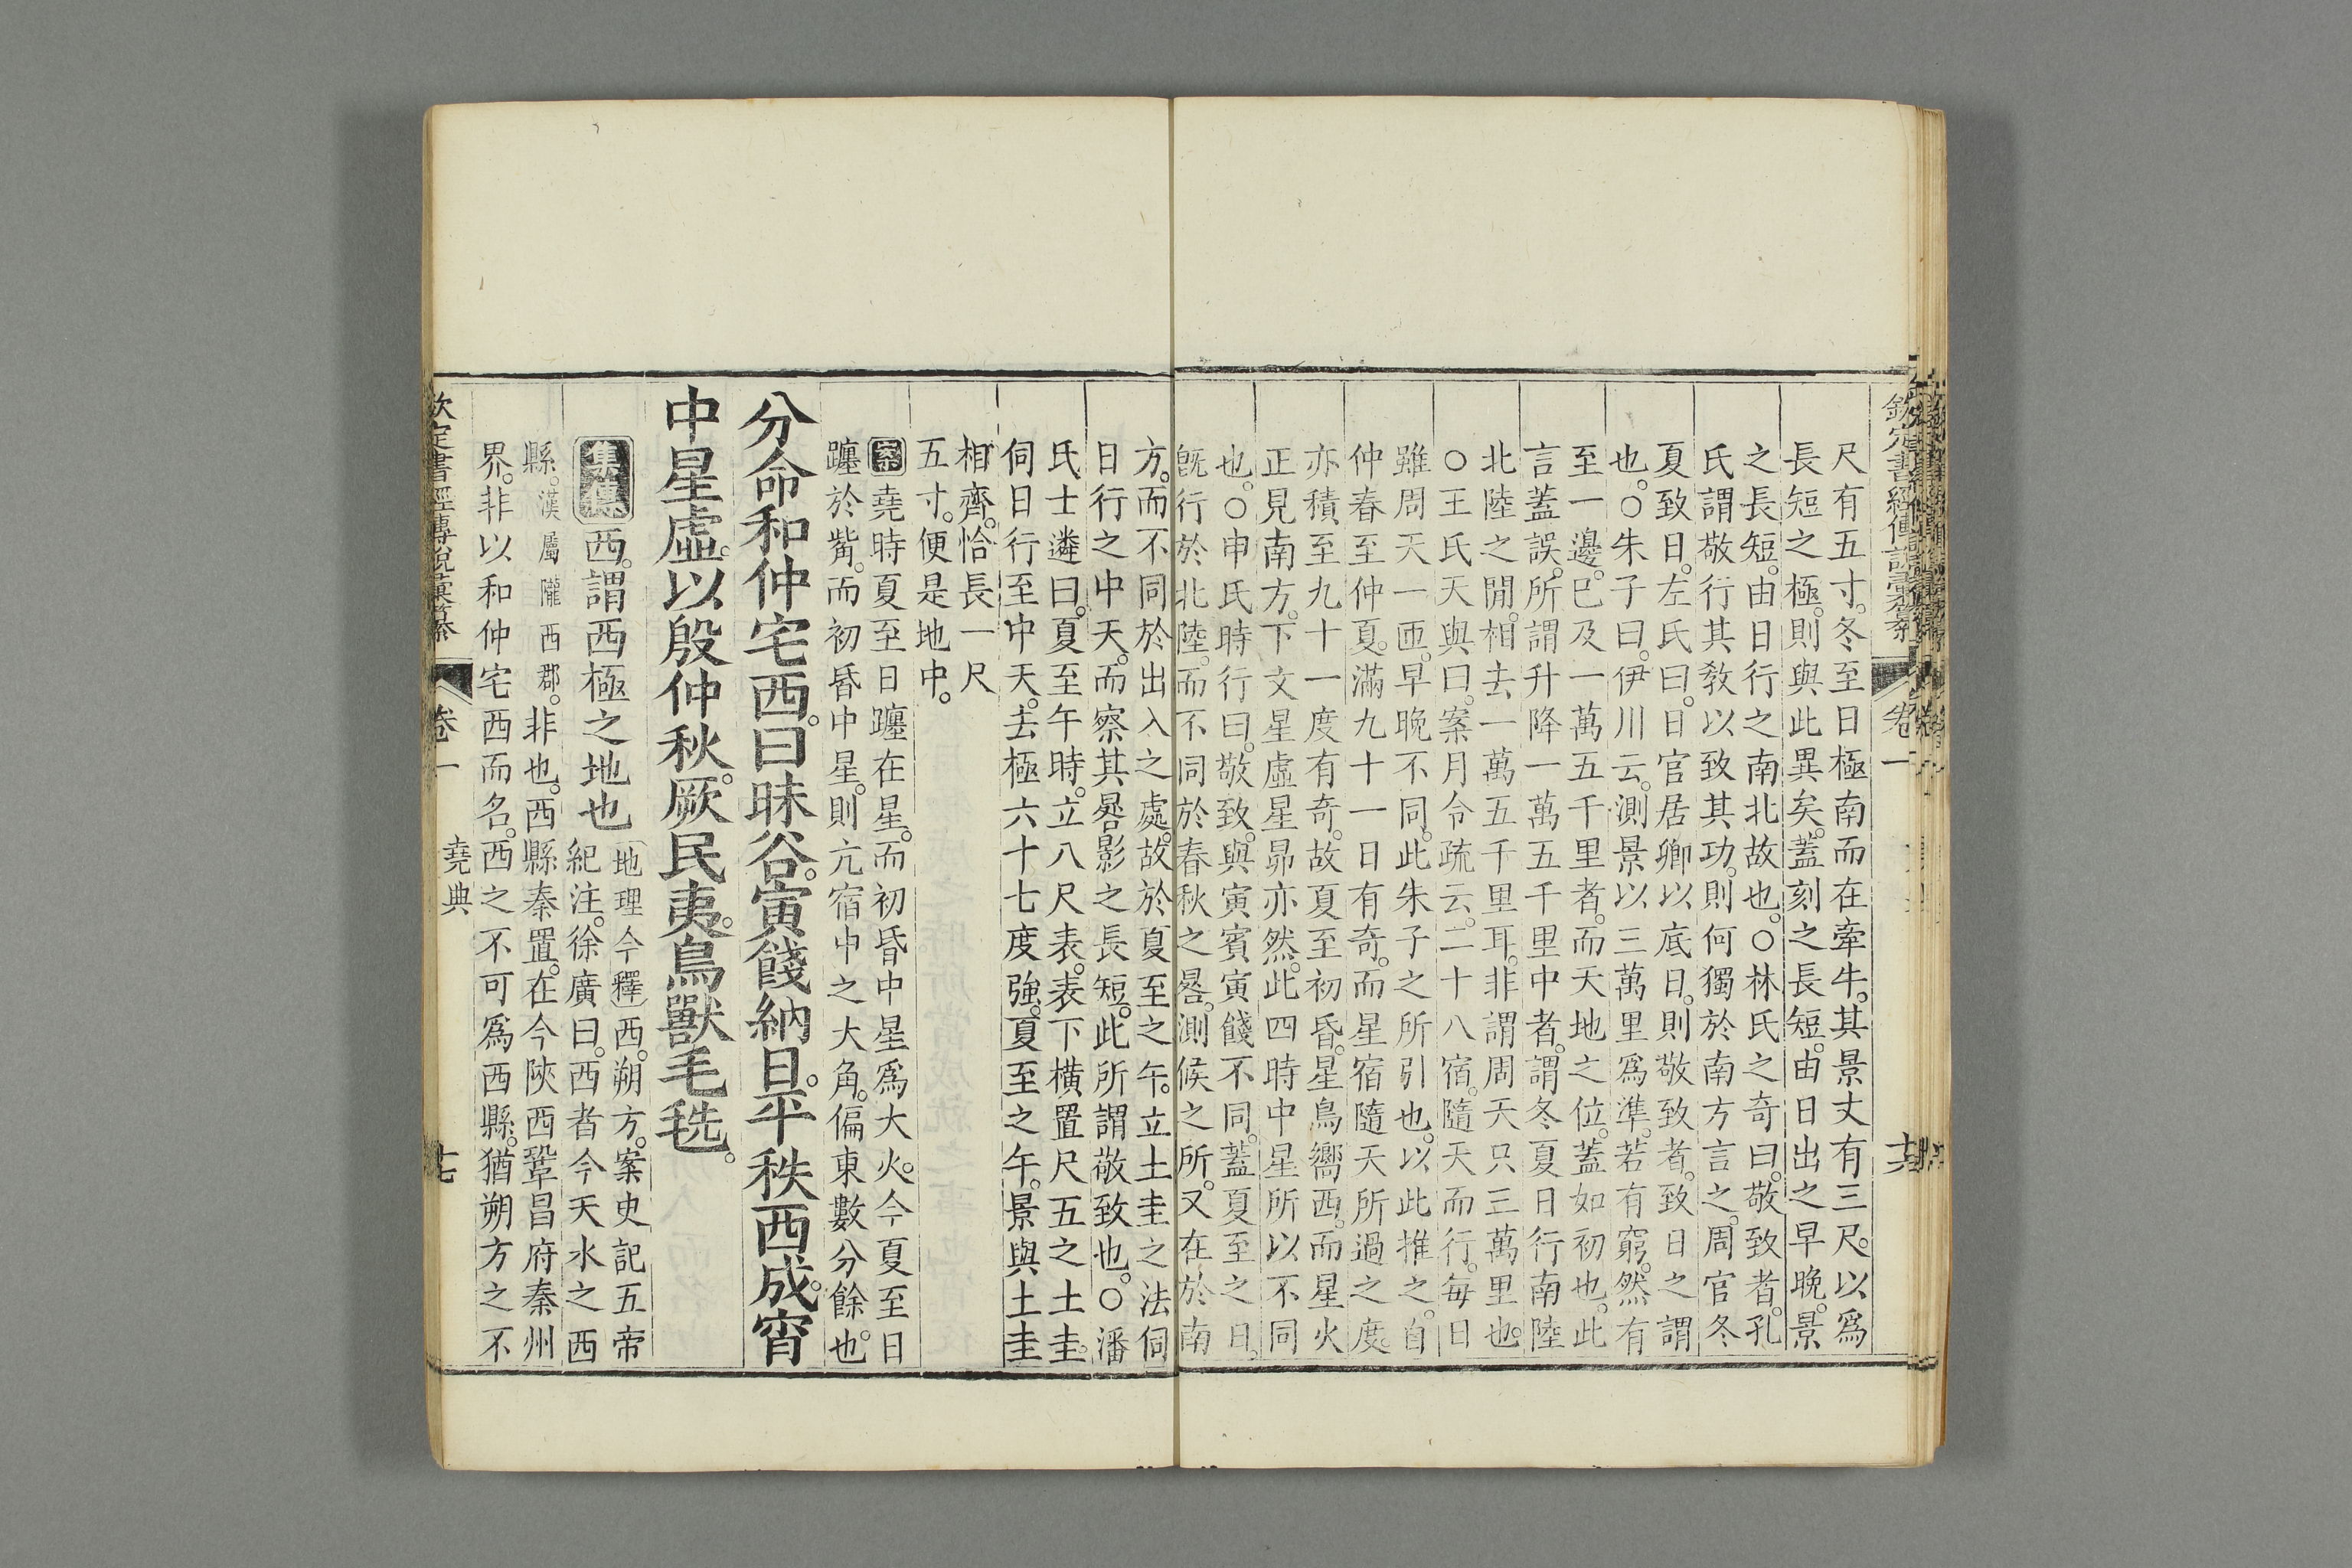 尺有五寸。冬至日極南而在牽牛。其景丈有三尺。以爲
長短之極。則與此異矣。蓋刻之長短。由日出之早晚。景
之長短。由日行之南北故也。○林氏之奇曰。敬致者。孔
氏謂敬行其敎以致其功。則何獨於南方言之。周官冬
夏致日。左氏曰。日官居卿以底日。則敬致者。致日之謂
也。○朱子曰。伊川云。測景以三萬里爲準。若有窮。然有
至一邊。已及一萬五千里者。而天地之位。蓋如初也。此
言蓋誤。所謂升降一萬五千里中者。謂冬夏日行南陸
北陸之閒。相去一萬五千里耳。非謂周天只三萬里也。
○王氏天與曰。案月令疏云。二十八宿。隨天而行。每日
雖周天一匝。早晚不同。此朱子之所引也。以此推之。自
仲春至仲夏。滿九十一日有奇。而星宿隨天所過之度。
亦積至九十一度有奇。故夏至初昏。星鳥嚮西。而星火
正見南方。下文星虛星昴亦然。此四時中星所以不同
也。○申氏時行曰。敬致。與寅賓寅餞不同。蓋夏至之日。
旣行於北陸。而不同於春秋之晷。測候之所。又在於南
方。而不同於出入之處。故於夏至之午。立土圭之法伺
日行之中天。而察其晷影之長短。此所謂敬致也。○潘
氏士遴曰。夏至午時。立八尺表。表下橫置尺五之土圭。
伺日行至中天。去極六十七度強。夏至之午。景與土圭
相齊。恰長一尺
五寸。便是地中。
案 堯時夏至日躔在星。而初昏中星爲大火。今夏至日
躔於觜。而初昏中星。則亢宿中之大角。偏東數分餘也。
分命和仲宅西。曰昧谷。寅餞納日。平秩西成。宵
中星虛。以殷仲秋。厥民夷。鳥獸毛毨。
集傳 西。謂西極之地也
地理今釋 西。朔方。案史記五帝
紀注。徐廣曰。西者今天水之西
縣。漢屬隴西郡。非也。西縣秦置。在今陝西鞏昌府秦州
界。非以和仲宅西而名。西之不可爲西縣。猶朔方之不
欽定書經傳說彙纂 卷一 堯典 十七